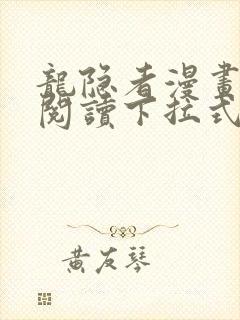 龍隐者漫畫
閱讀下拉式
黃友琴